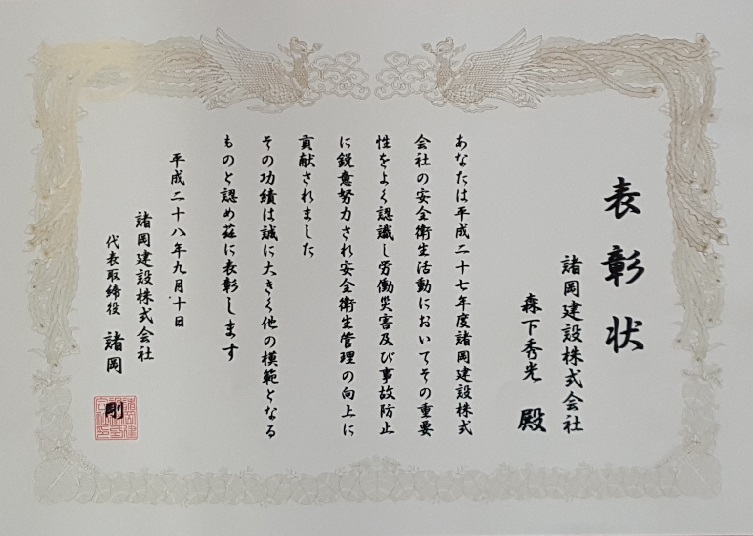 表彰状
諸岡建設株式会社
森下秀光 殿
あなたは平成二十七年度諸岡建設株式
会社の安全衛生活動においてその重要
性をよく認識し労働災害及び事故防止
に鋭意努力され安全衛生管理の向上に
貢献されました
その功績は誠に大きく他の模範となる
ものと認め茲に表彰します
平成二十八年九月十日
諸岡建設株式会社
代表取締役 諸岡 剛